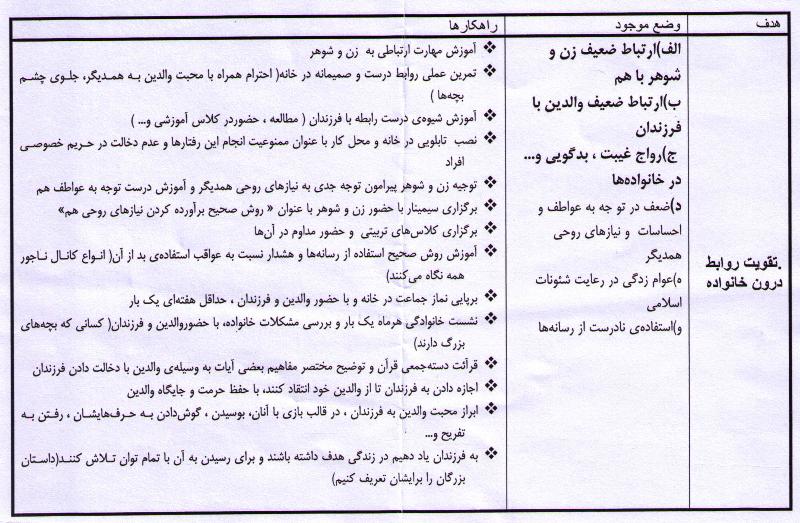 هدف
وضع موجود
راهکارها
.تقویت روابط
درون خانواده
الف)ارتباط ضعیف زن و
شوهر با هم
ب)ارتباط ضعیف والدین با
فرزندان
ج)رواج غیبت ، بدگویی و...
در خانواده‌ها
د)ضعف در تو جه به عواطف و
احساسات و نیازهای روحی
همدیگر
ه)عوام زدگی در رعایت شئونات
اسلامی
و)استفاده‌ی نادرست از رسانه‌ها
❖ آموزش مهارت ارتباطی به زن و شوهر
❖ تمرین عملی روابط درست و صمیمانه در خانه( احترام همراه با محبت والدین به همدیگر، جلوی چشم
بچه‌ها )
❖ آموزش شیوه‌ی درست رابطه با فرزندان ( مطالعه ، حضوردر کلاس آموزشی و... )
❖ نصب تابلویی در خانه و محل کار با عنوان ممنوعیت انجام این رفتارها و عدم دخالت در حریم خصوصی
افراد
❖ توجیه زن و شوهر پیرامون توجه جدی به نیازهای روحی همدیگر و آموزش درست توجه به عواطف هم
❖ برگزاری سیمینار با حضور زن و شوهر با عنوان « روش صحیح برآورده کردن نیازهای روحی هم»
❖ برگزاری کلاس‌های تربیتی و حضور مداوم در آن‌ها
❖ آموزش روش صحیح استفاده از رسانه‌ها و هشدار نسبت به عواقب استفاده‌ی بد از آن( انواع کانال ناجور
همه نگاه می‌کنند)
❖ برپایی نماز جماعت در خانه و با حضور والدین و فرزندان ، حداقل هفته‌ای یک بار
❖ نشست خانوادگی هرماه یک بار و بررسی مشکلات خانواده، با حضوروالدین و فرزندان( کسانی که بچه‌های
بزرگ دارند)
❖ قرائت دسته‌جمعی قرآن و توضیح مختصر مفاهیم بعضی آیات به وسیله‌ی والدین با دخالت دادن فرزندان
❖ اجازه دادن به فرزندان تا از والدین خود انتقاد کنند، با حفظ حرمت و جایگاه والدین
❖ ابراز محبت والدین به فرزندان ، در قالب بازی با آنان، بوسیدن ، گوش‌دادن به حرف‌هایشان ، رفتن به
تفریح و...
❖ به فرزندان یاد دهیم در زندگی هدف داشته باشند و برای رسیدن به آن با تمام توان تلاش کنند(داستان
بزرگان را برایشان تعریف کنیم)